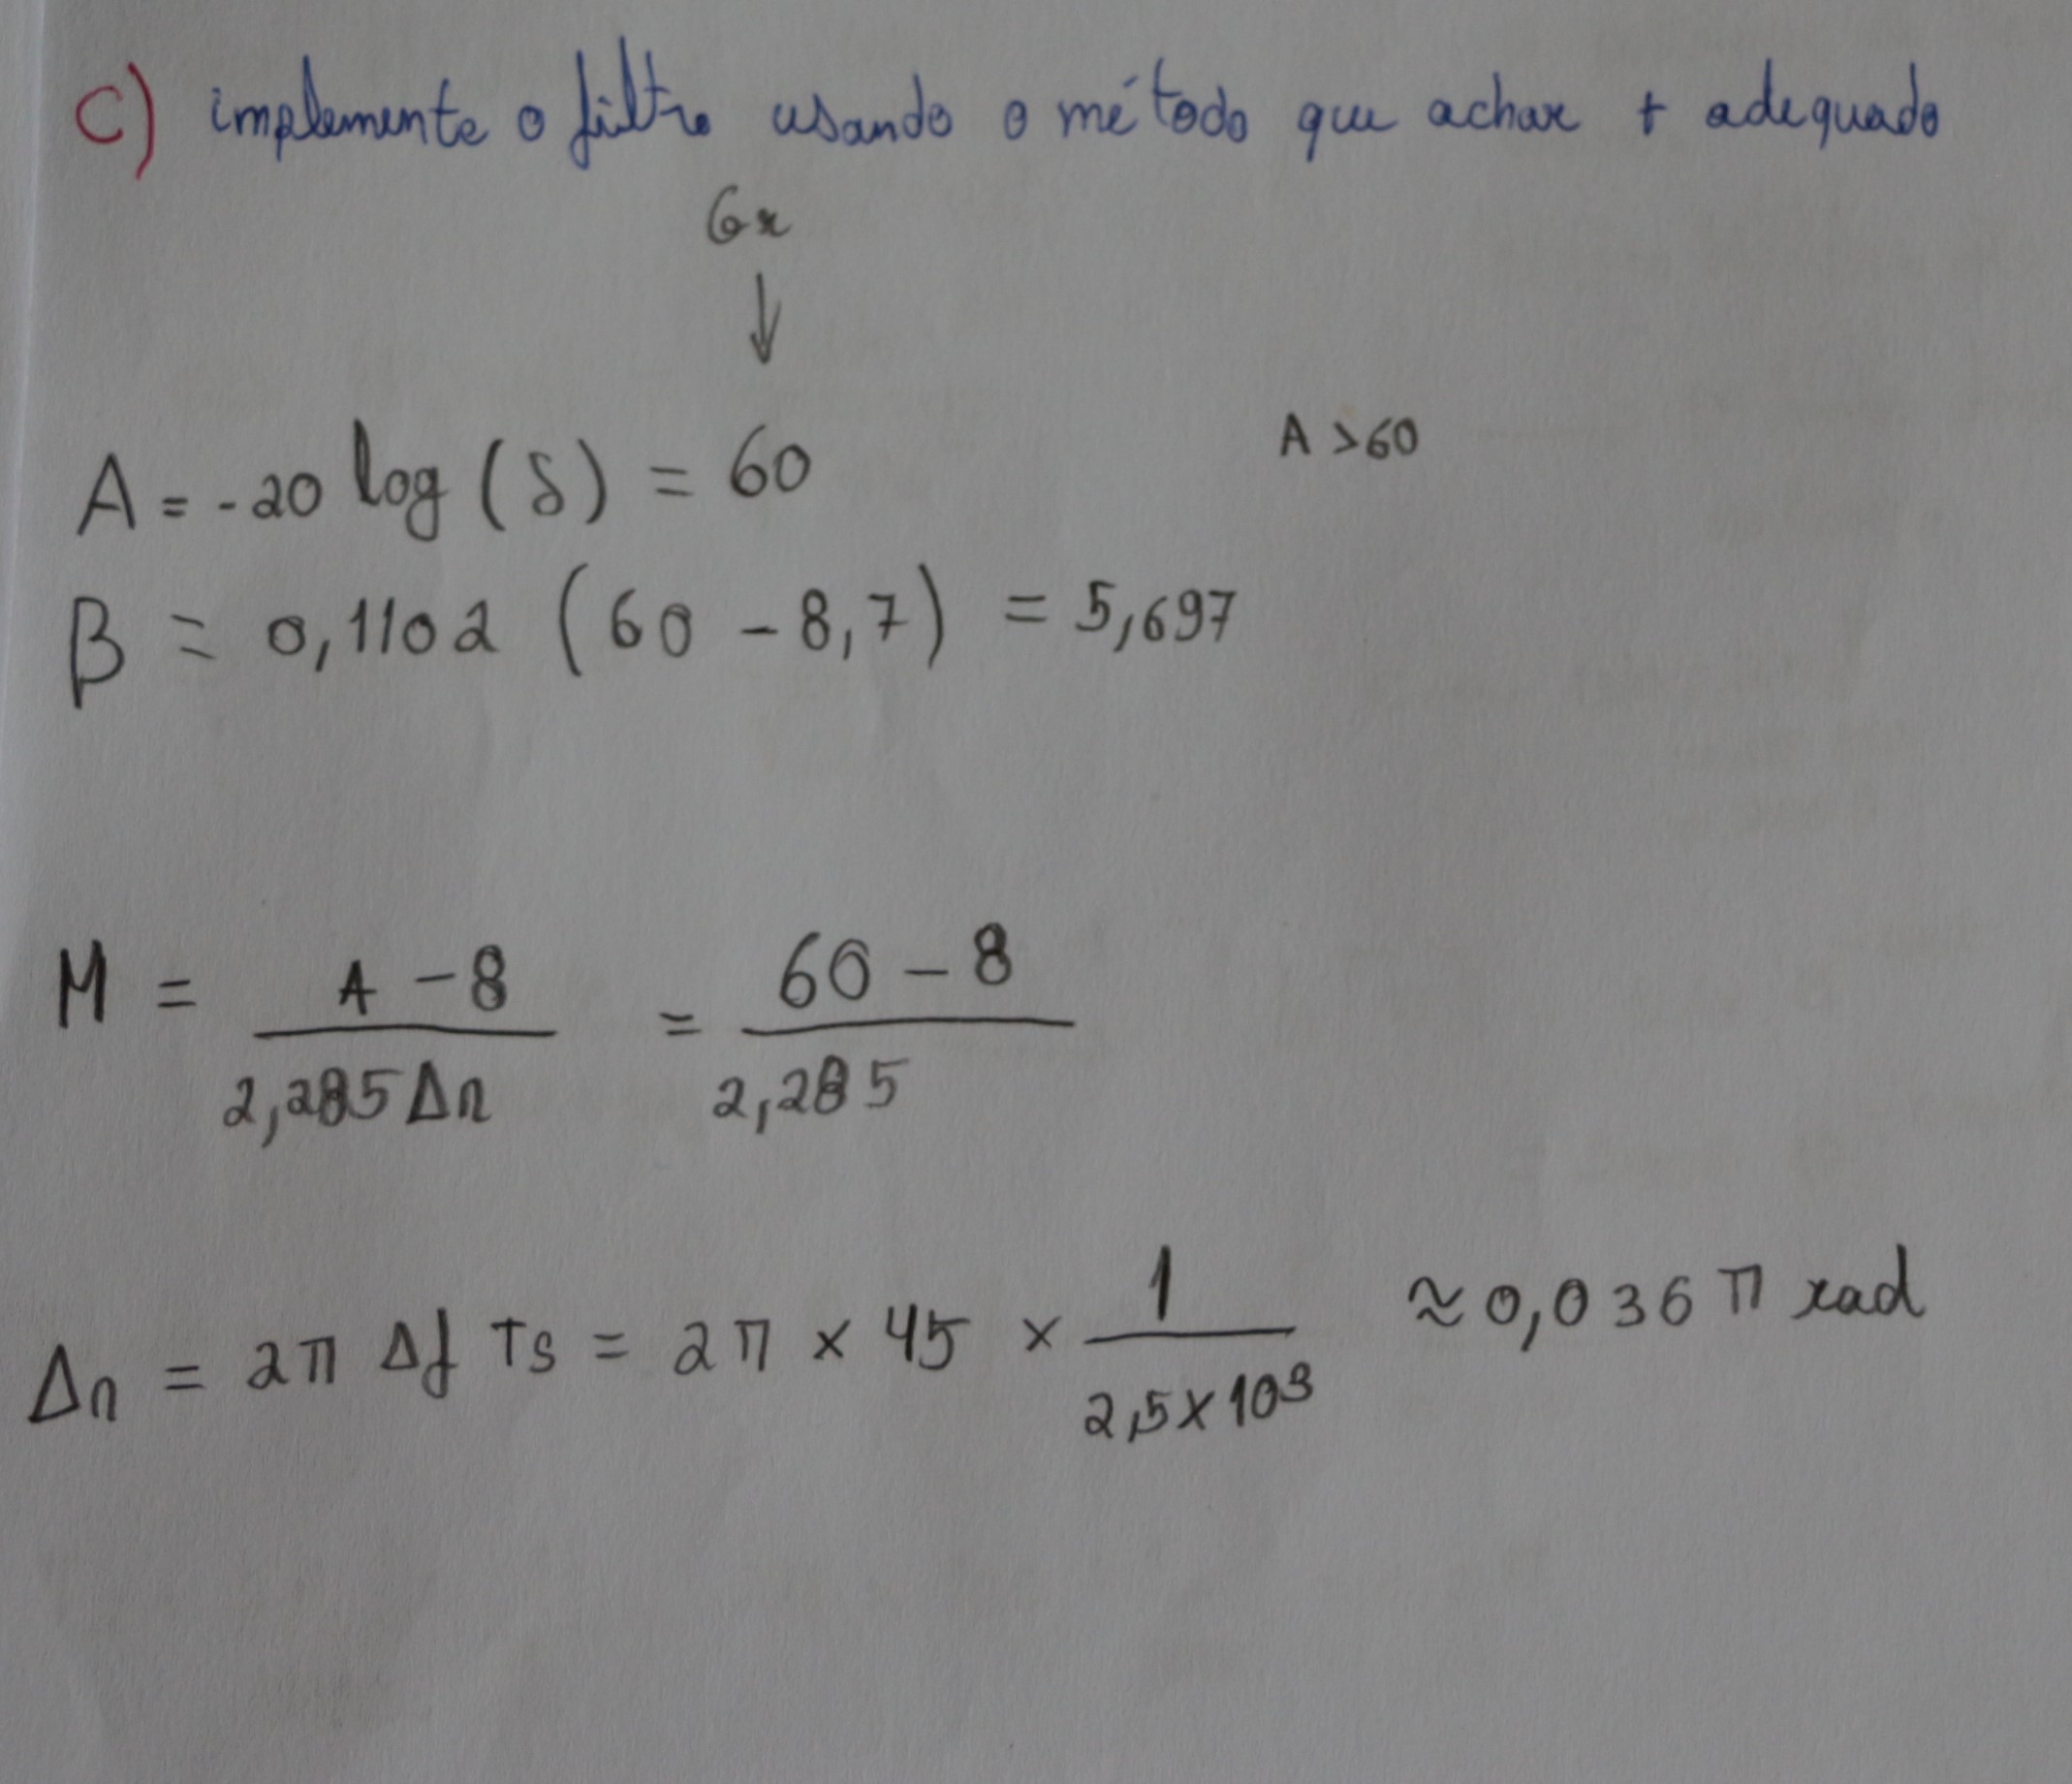 c) implemente o filtro usando o método que achar + adequado
↓
A = -20 log (δ) = 60
A > 60
β = 0,1102 (60 - 8,7) = 5,697
M = A - 8 / 2,285 ΔΩ = 60 - 8 / 2,285
ΔΩ = 2π Δf Ts = 2π × 45 × 1 / 2,5 × 10³ ≈ 0,036 π rad